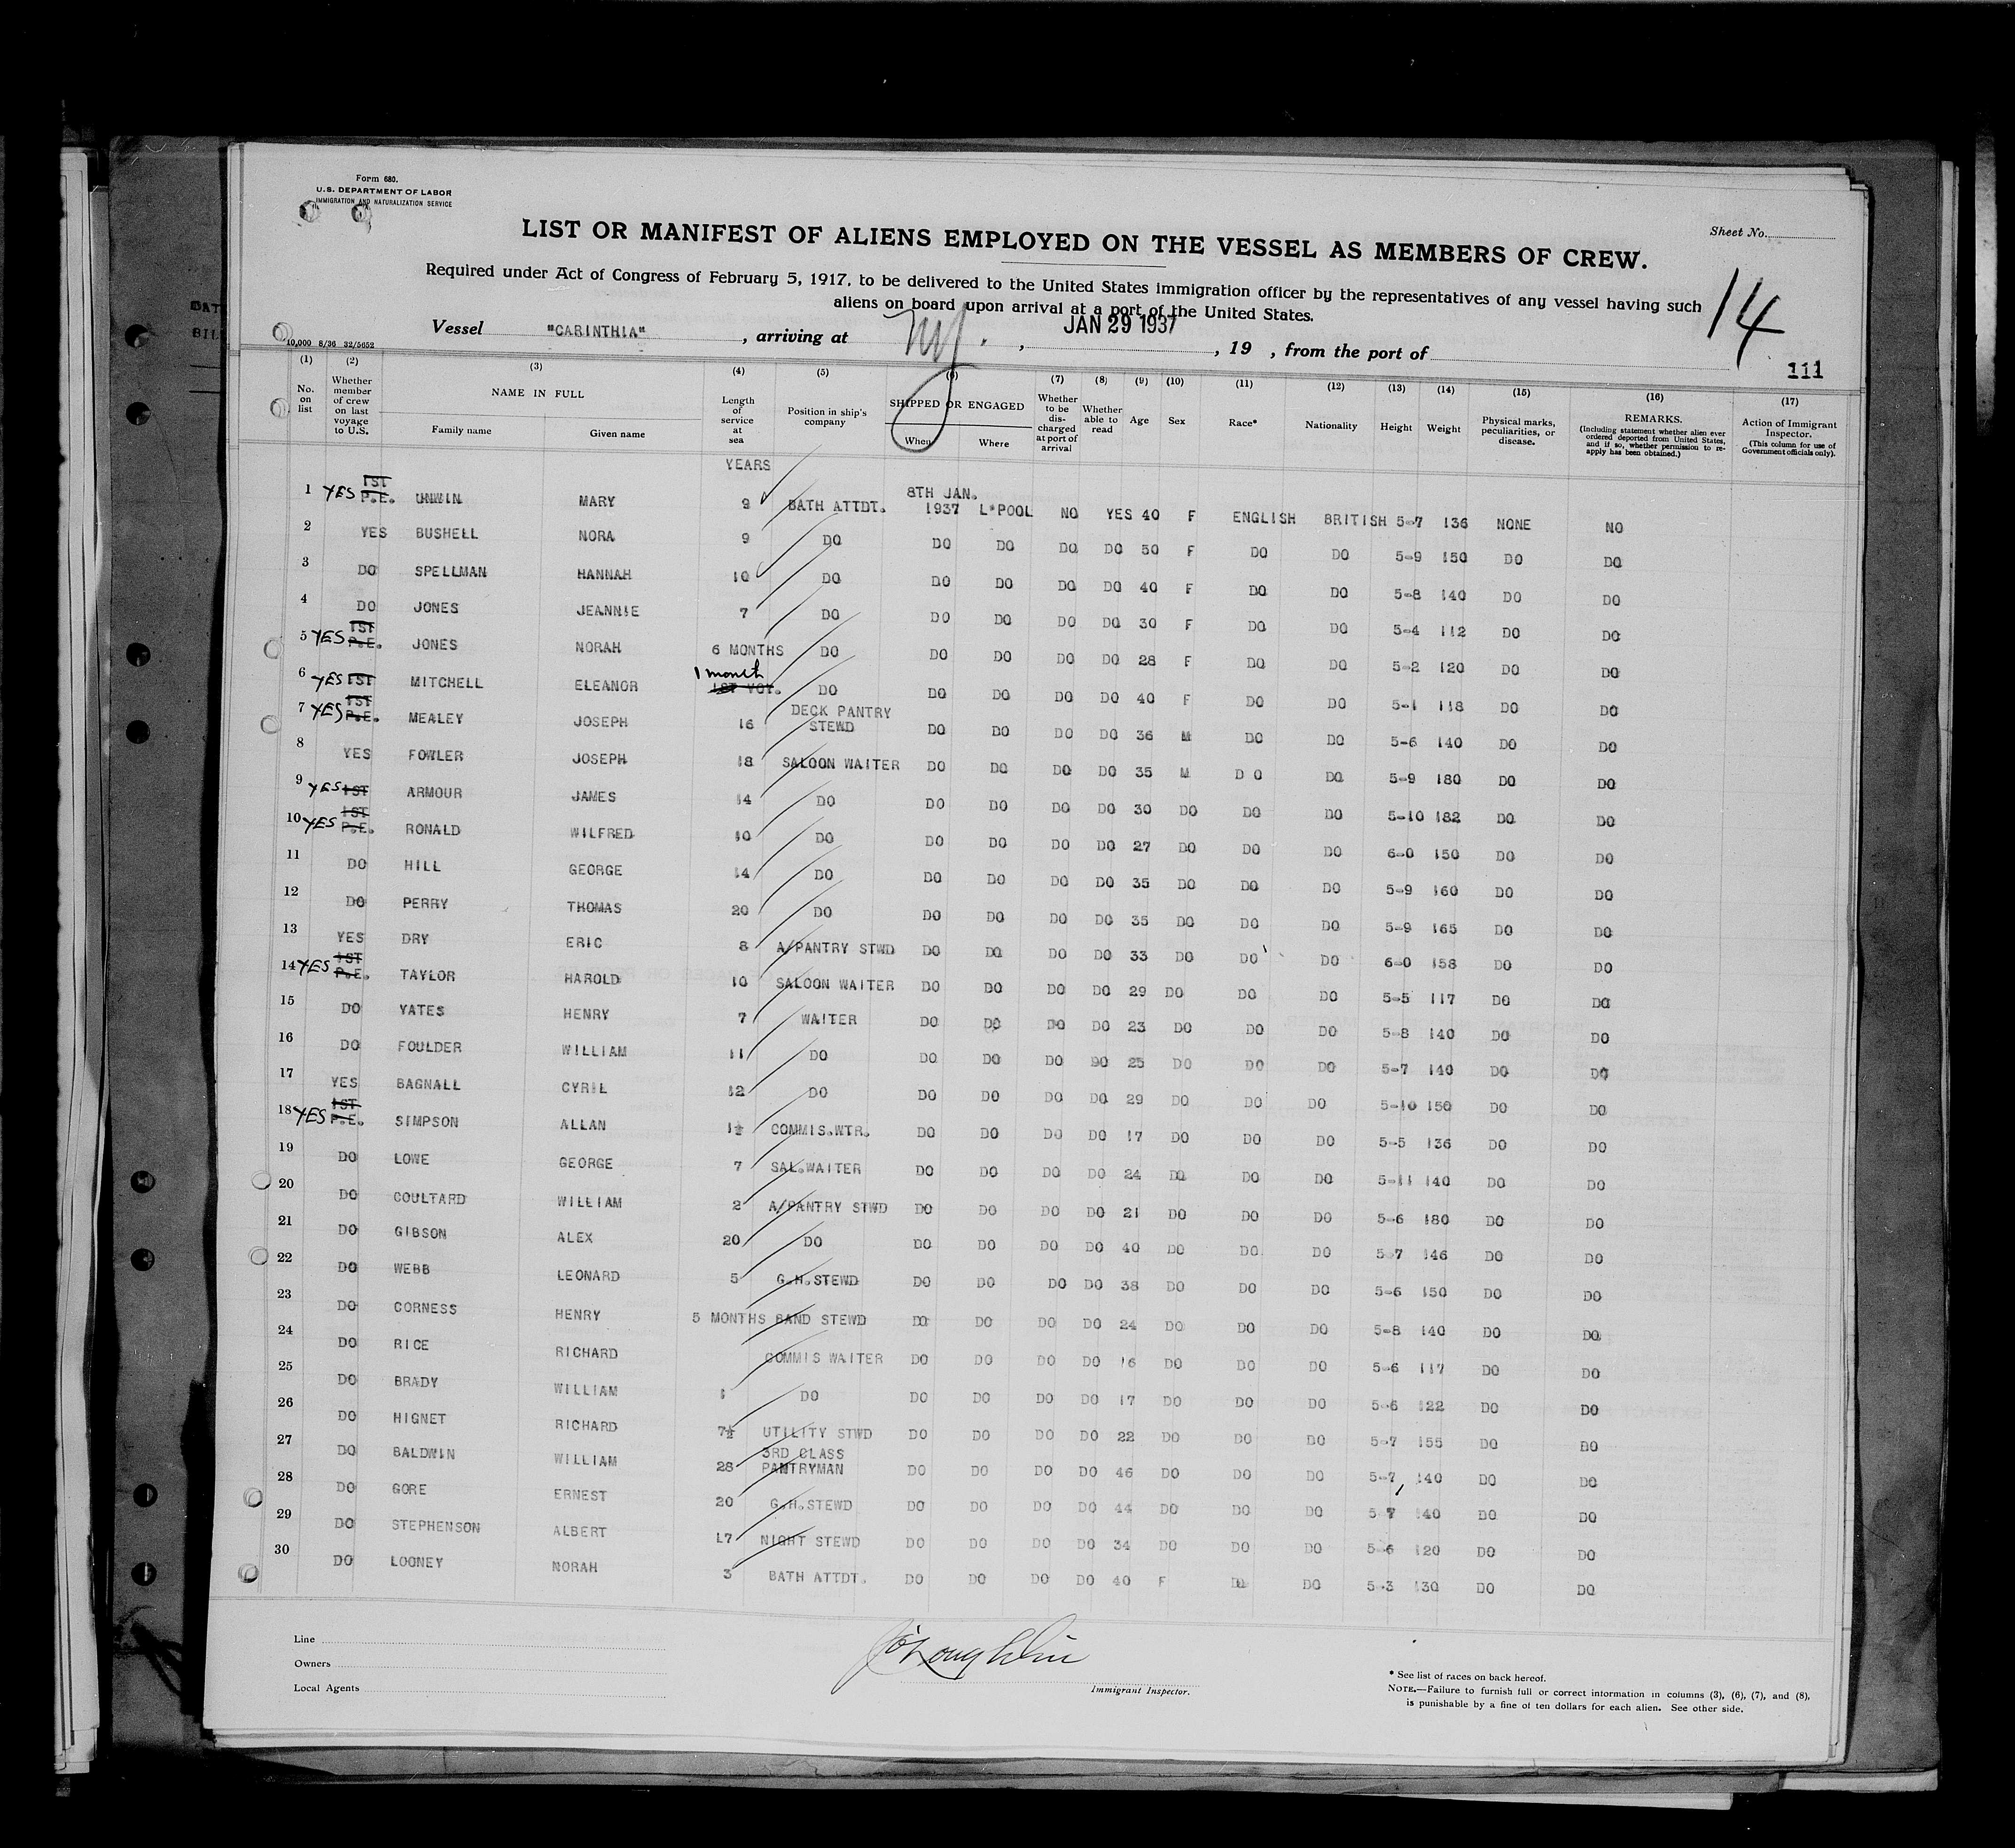 Form 680.
U.S. DEPARTMENT OF LABOR
IMMIGRATION AND NATURALIZATION SERVICE
LIST OR MANIFEST OF ALIENS EMPLOYED ON THE VESSEL AS MEMBERS OF CREW.
Sheet No.
Required under Act of Congress of February 5, 1917, to be delivered to the United States immigration officer by the representatives of any vessel having such
aliens on board upon arrival at a port of the United States.
14
Vessel "CARINTHIA", arriving at NY., JAN 29 1937, 19 , from the port of
10,000 8/36 32/5652
111
(1) No. on list (2) Whether member of crew on last voyage to U.S. (3) NAME IN FULL Family name Given name (4) Length of service at sea (5) Position in ship's company (6) SHIPPED OR ENGAGED When Where (7) Whether to be discharged at port of arrival (8) Whether able to read (9) Age (10) Sex (11) Race* (12) Nationality (13) Height (14) Weight (15) Physical marks, peculiarities, or disease. (16) REMARKS. (Including statement whether alien ever ordered deported from United States, and if so, whether permission to reapply has been obtained.) (17) Action of Immigrant Inspector. (This column for use of Government officials only).
YEARS
1 YES 1ST P.E. UNWIN MARY 9 BATH ATTDT. 8TH JAN. 1937 L'POOL NO YES 40 F ENGLISH BRITISH 5-7 136 NONE NO
2 YES BUSHELL NORA 9 DO DO DO DO DO 50 F DO DO 5-9 150 DO DO
3 DO SPELLMAN HANNAH 10 DO DO DO DO DO 40 F DO DO 5-8 140 DO DO
4 DO JONES JEANNIE 7 DO DO DO DO DO 30 F DO DO 5-4 112 DO DO
5 YES 1ST P.E. JONES NORAH 6 MONTHS DO DO DO DO DO 28 F DO DO 5-2 120 DO DO
6 YES 1ST MITCHELL ELEANOR 1 month 1ST VOY. DO DO DO DO DO 40 F DO DO 5-1 118 DO DO
7 YES 1ST P.E. MEALEY JOSEPH 16 DECK PANTRY STEWD DO DO DO DO 36 M DO DO 5-6 140 DO DO
8 YES FOWLER JOSEPH 18 SALOON WAITER DO DO DO DO 35 M D O DO 5-9 180 DO DO
9 YES 1ST ARMOUR JAMES 14 DO DO DO DO DO 30 DO DO DO 5-10 182 DO DO
10 YES 1ST P.E. RONALD WILFRED 10 DO DO DO DO DO 27 DO DO DO 6-0 150 DO DO
11 DO HILL GEORGE 14 DO DO DO DO DO 35 DO DO DO 5-9 160 DO DO
12 DO PERRY THOMAS 20 DO DO DO DO DO 35 DO DO DO 5-9 165 DO DO
13 YES DRY ERIC 8 A/PANTRY STWD DO DO DO DO 33 DO DO DO 6-0 158 DO DO
14 YES 1ST P.E. TAYLOR HAROLD 10 SALOON WAITER DO DO DO DO 29 DO DO DO 5-5 117 DO DO
15 DO YATES HENRY 7 WAITER DO DO DO DO 23 DO DO DO 5-8 140 DO DO
16 DO FOULDER WILLIAM 11 DO DO DO DO 90 25 DO DO DO 5-7 140 DO DO
17 YES BAGNALL CYRIL 12 DO DO DO DO DO 29 DO DO DO 5-10 150 DO DO
18 YES 1ST P.E. SIMPSON ALLAN 1½ COMMIS.WTR. DO DO DO DO 17 DO DO DO 5-5 136 DO DO
19 DO LOWE GEORGE 7 SAL.WAITER DO DO DO DO 24 DO DO DO 5-11 140 DO DO
20 DO COULTARD WILLIAM 2 A/PANTRY STWD DO DO DO DO 21 DO DO DO 5-6 180 DO DO
21 DO GIBSON ALEX 20 DO DO DO DO DO 40 DO DO DO 5-7 146 DO DO
22 DO WEBB LEONARD 5 G.H.STEWD DO DO DO DO 38 DO DO DO 5-6 150 DO DO
23 DO CORNESS HENRY 5 MONTHS BAND STEWD DO DO DO DO 24 DO DO DO 5-8 140 DO DO
24 DO RICE RICHARD COMMIS WAITER DO DO DO DO 16 DO DO DO 5-6 117 DO DO
25 DO BRADY WILLIAM 1 DO DO DO DO DO 17 DO DO DO 5-6 122 DO DO
26 DO HIGNET RICHARD 7½ UTILITY STWD DO DO DO DO 22 DO DO DO 5-7 155 DO DO
27 DO BALDWIN WILLIAM 28 3RD CLASS PANTRYMAN DO DO DO DO 46 DO DO DO 5-7 140 DO DO
28 DO GORE ERNEST 20 G.H.STEWD DO DO DO DO 44 DO DO DO 5 7 140 DO DO
29 DO STEPHENSON ALBERT 17 NIGHT STEWD DO DO DO DO 34 DO DO DO 5-6 120 DO DO
30 DO LOONEY NORAH 3 BATH ATTDT. DO DO DO DO 40 F DO DO 5-3 130 DO DO
Line
Owners
Local Agents
J O'Loughlin
Immigrant Inspector.
* See list of races on back hereof.
NOTE.—Failure to furnish full or correct information in columns (3), (6), (7), and (8),
is punishable by a fine of ten dollars for each alien. See other side.